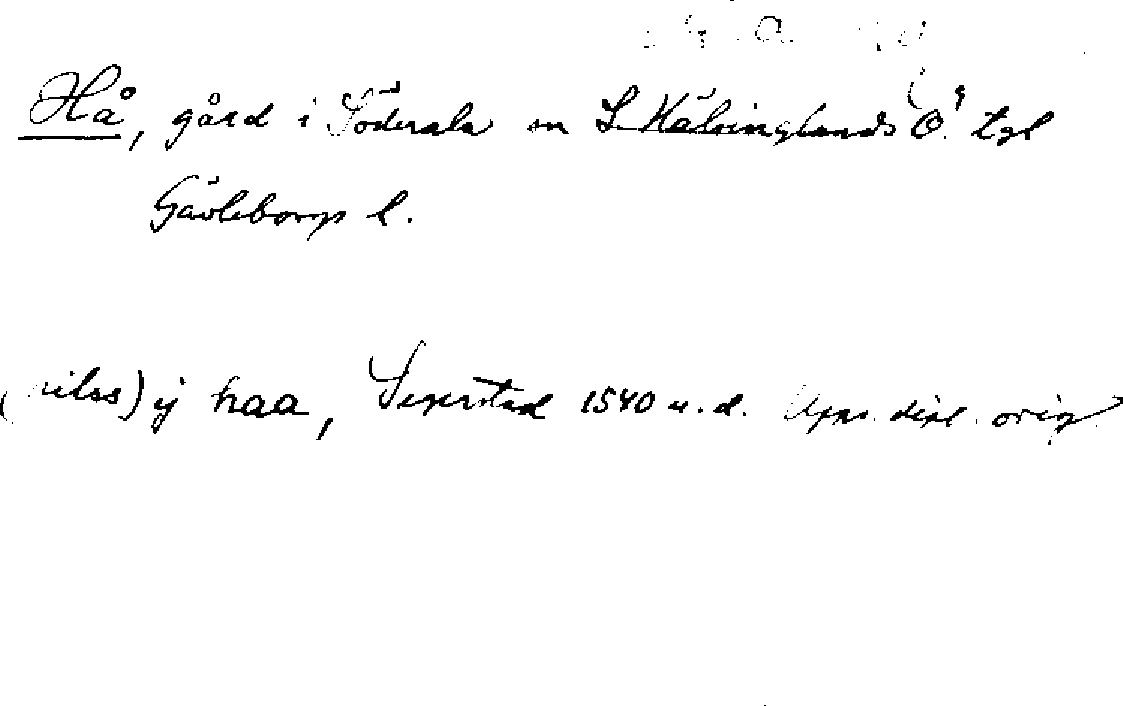 Hå, gård i Söderala sn S. Hälsinglands tgl
Gävleborgs l.
(nilss) ij haa, 1540 u.d. Upps. dipl. orig